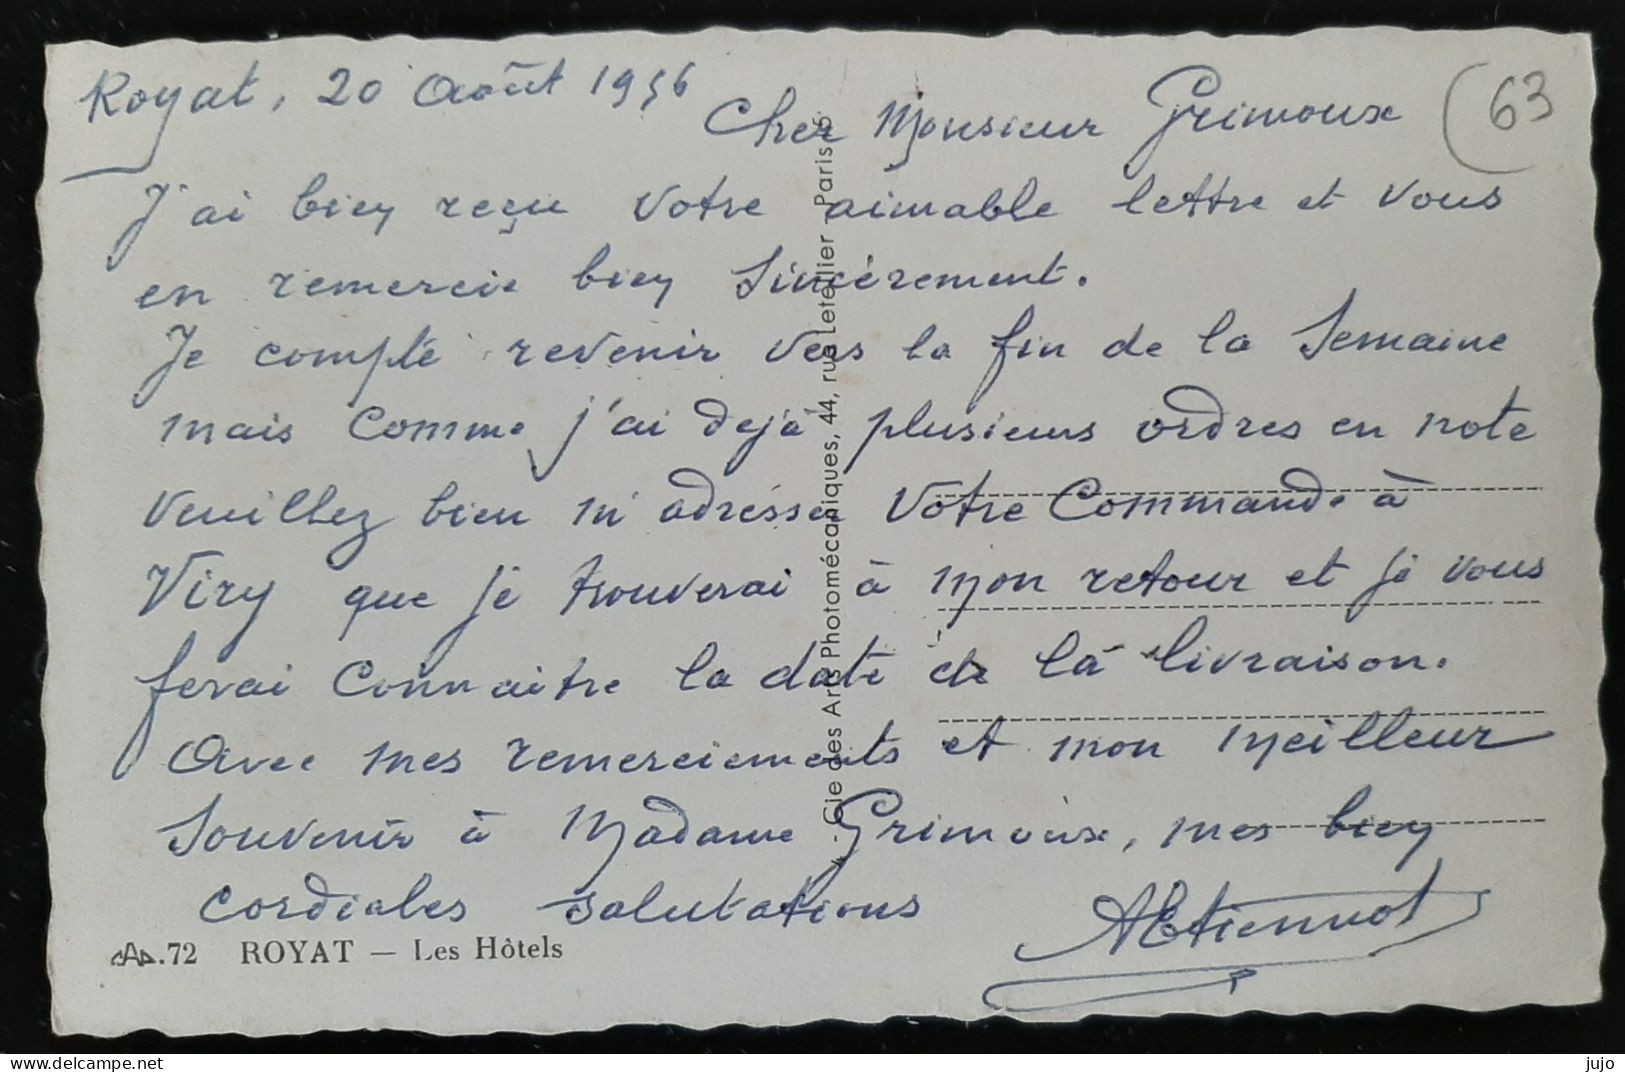 Royat, 20 Août 1956
(63
Cher Monsieur Grimoux
J'ai bien reçu votre aimable lettre et vous
en remercie bien sincèrement.
Je compte revenir vers la fin de la semaine
mais comme j'ai dejà plusieurs ordres en note
Veuillez bien m'adresser votre commande à
Viry que je trouverai à mon retour et je vous
ferai connaitre la date de la livraison.
Avec mes remerciements et mon meilleur
souvenir à Madame Grimoux, mes bien
cordiales salutations
AEtiennot
.72 ROYAT — Les Hôtels
Cie des Arts Photomécaniques, 44, rue Letellier - Paris
Delcampe.net
jujo